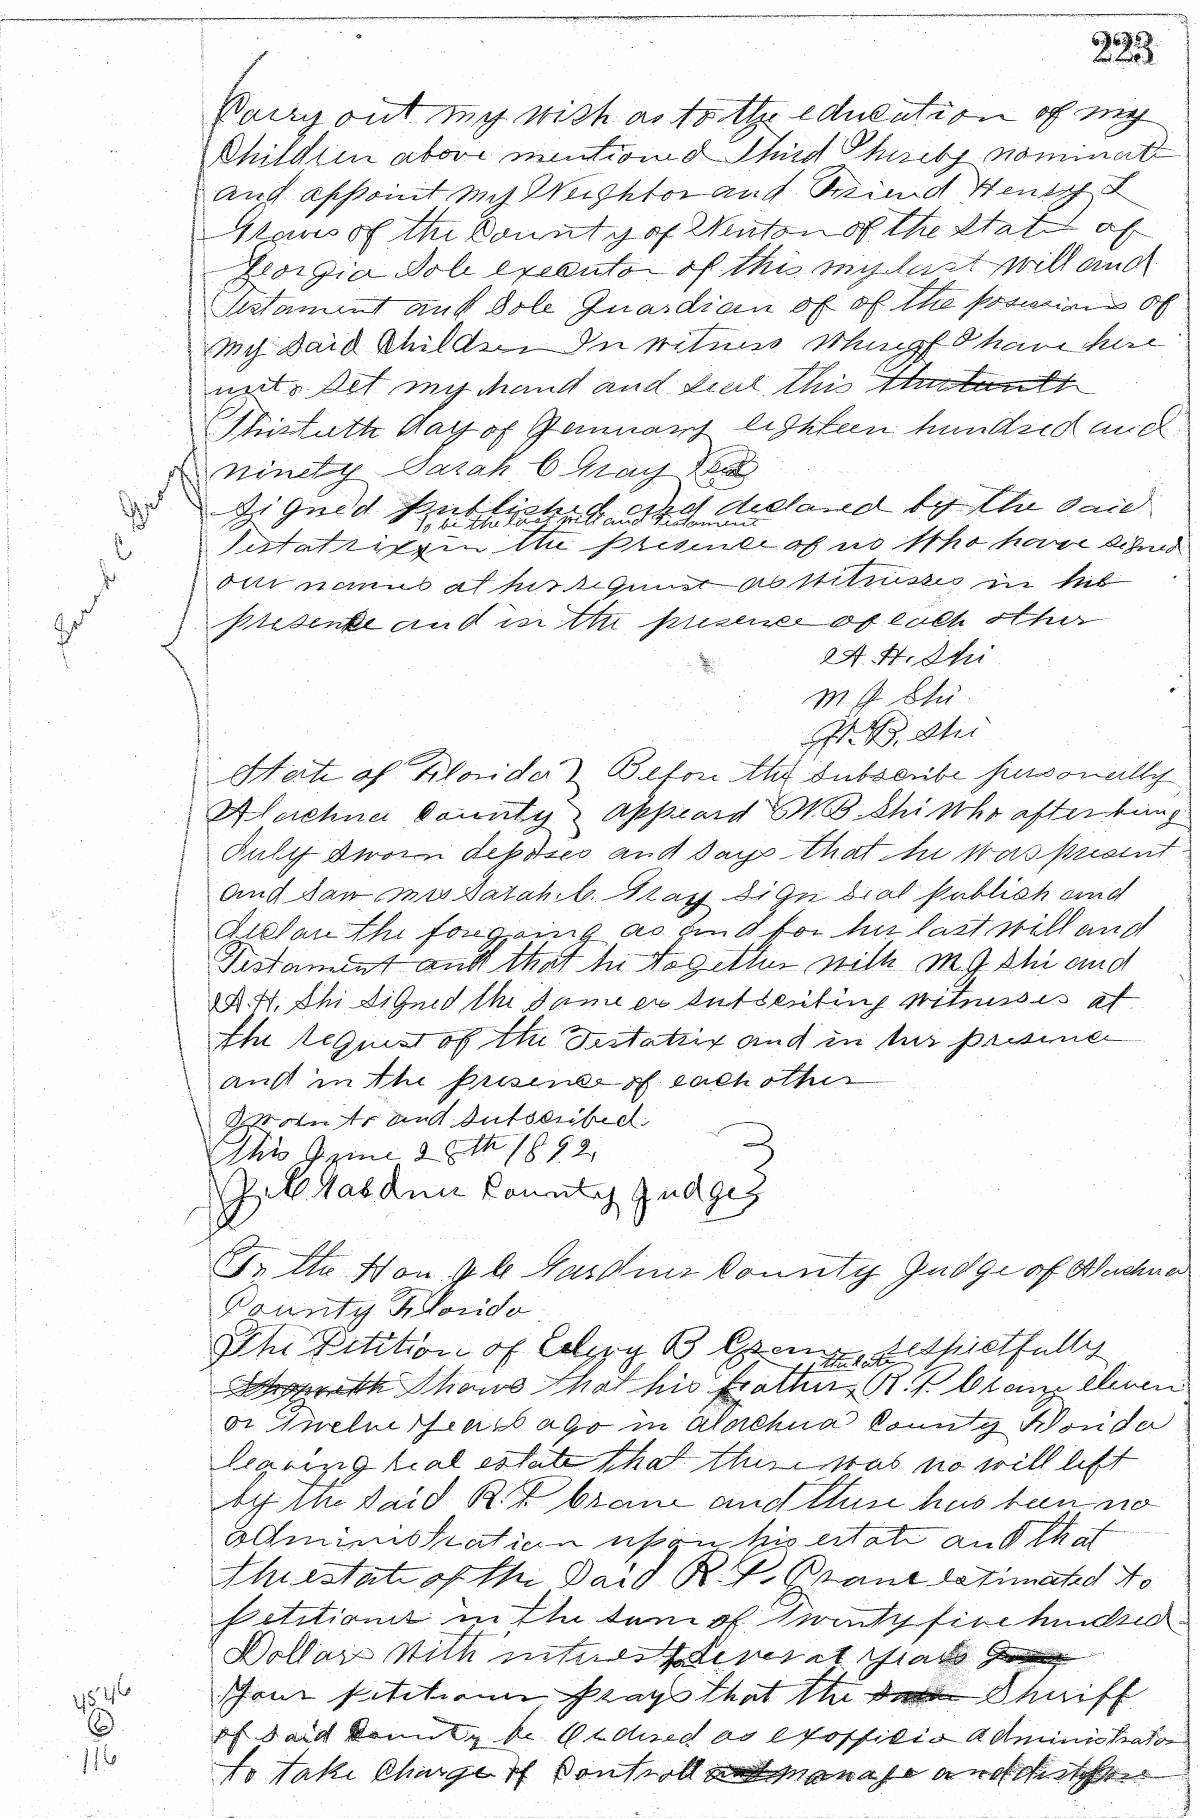 223
Carry out my wish as to the education of my
Children above mentioned Third I hereby nominate
and appoint my Neighbor and Friend Henry L
Graves of the County of Newton of the State of
Georgia Sole executor of this my last will and
Testament and Sole Guardian of of the possessions of
my said Children In witness whereof I have here
unto set my hand and seal this
Thirtieth day of January eighteen hundred and
ninety Sarah C Gray Seal
Sarah C Gray
Signed Published and declared by the said
to be the last will and Testament
Testatrix x in the presence of us who have signed
our names at her request as witnesses in her
presence and in the presence of each other
A. H. Shi
M J Shi
W. B. Shi
State of Florida } Before the subscribe personally
Alachua County } appeard W. B. Shi who after being
duly sworn deposes and says that he was present
and saw mrs Sarah. C. Gray sign seal publish and
declare the foregoing as and for her last will and
Testament and that he together with M J Shi and
A. H. Shi signed the same as subscribing witnesses at
the request of the Testatrix and in her presence
and in the presence of each other
Sworn to and subscribed
This June 28th 1892.
J. C Gardner County Judge }
To the Hon J C Gardner County Judge of Alachua
County Florida
The Petition of B Crane respectfully
the late
Shows that his father R. P. Crane eleven
or Twelve years ago in Alachua County Florida
leaving real estate that there was no will left
by the said R. P. Crane and there has been no
administration upon his estate and that
the estate of the said R. P. Crane estimated to
petitioner in the sum of Twenty five hundred
Dollars with interest for several years
Your petitioner prays that the Sheriff
of said County be Ordered as exofficio administrator
to take Charge of Controll manage and
4546
6
116